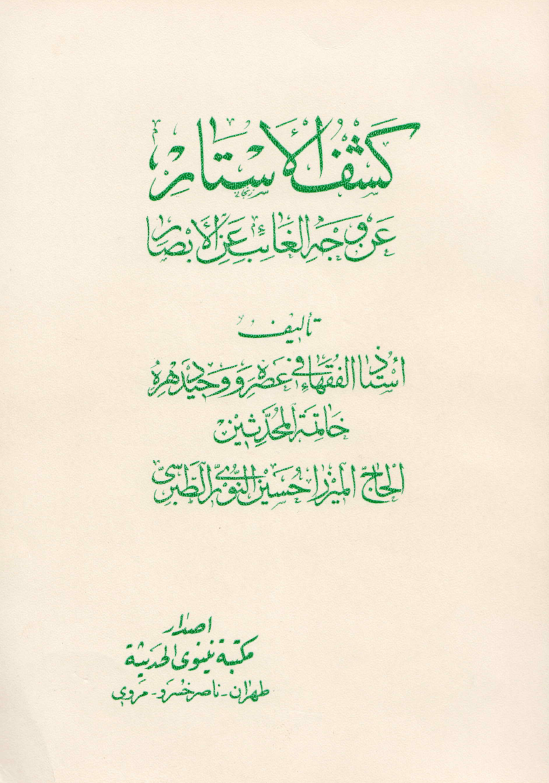 كَشْفُ الأَسْتَارِ
عَنْ وَجْهِ الغَائِبِ عَنِ الأَبْصَارِ
تأليف
أُسْتَاذِ الفُقَهَاءِ فِي عَصْرِهِ وَوَحِيدِ دَهْرِهِ
خَاتِمَةِ المُحَدِّثِين
الحَاجّ المِيرزا حُسَيْن النُّورِيّ الطَّبَرسِيّ
اصدار
مكتبة نينوى الحديثة
طهران - ناصر خسرو - مروي